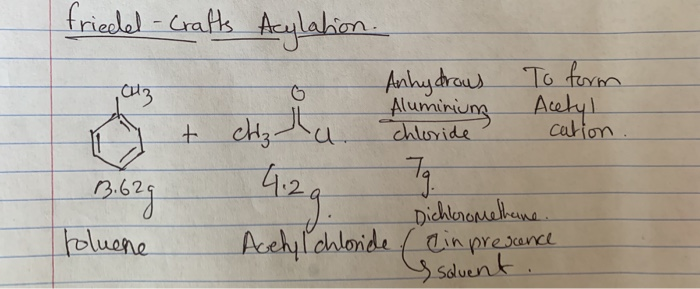 Friedel-Crafts Acylation.
CH3 O Anhydrous To form
+ CH3 Cl. Aluminium Acetyl
chloride cation.
13.62g 4.2g. 7g.
Dichloromethane.
toluene Acetyl chloride (in presence
solvent.